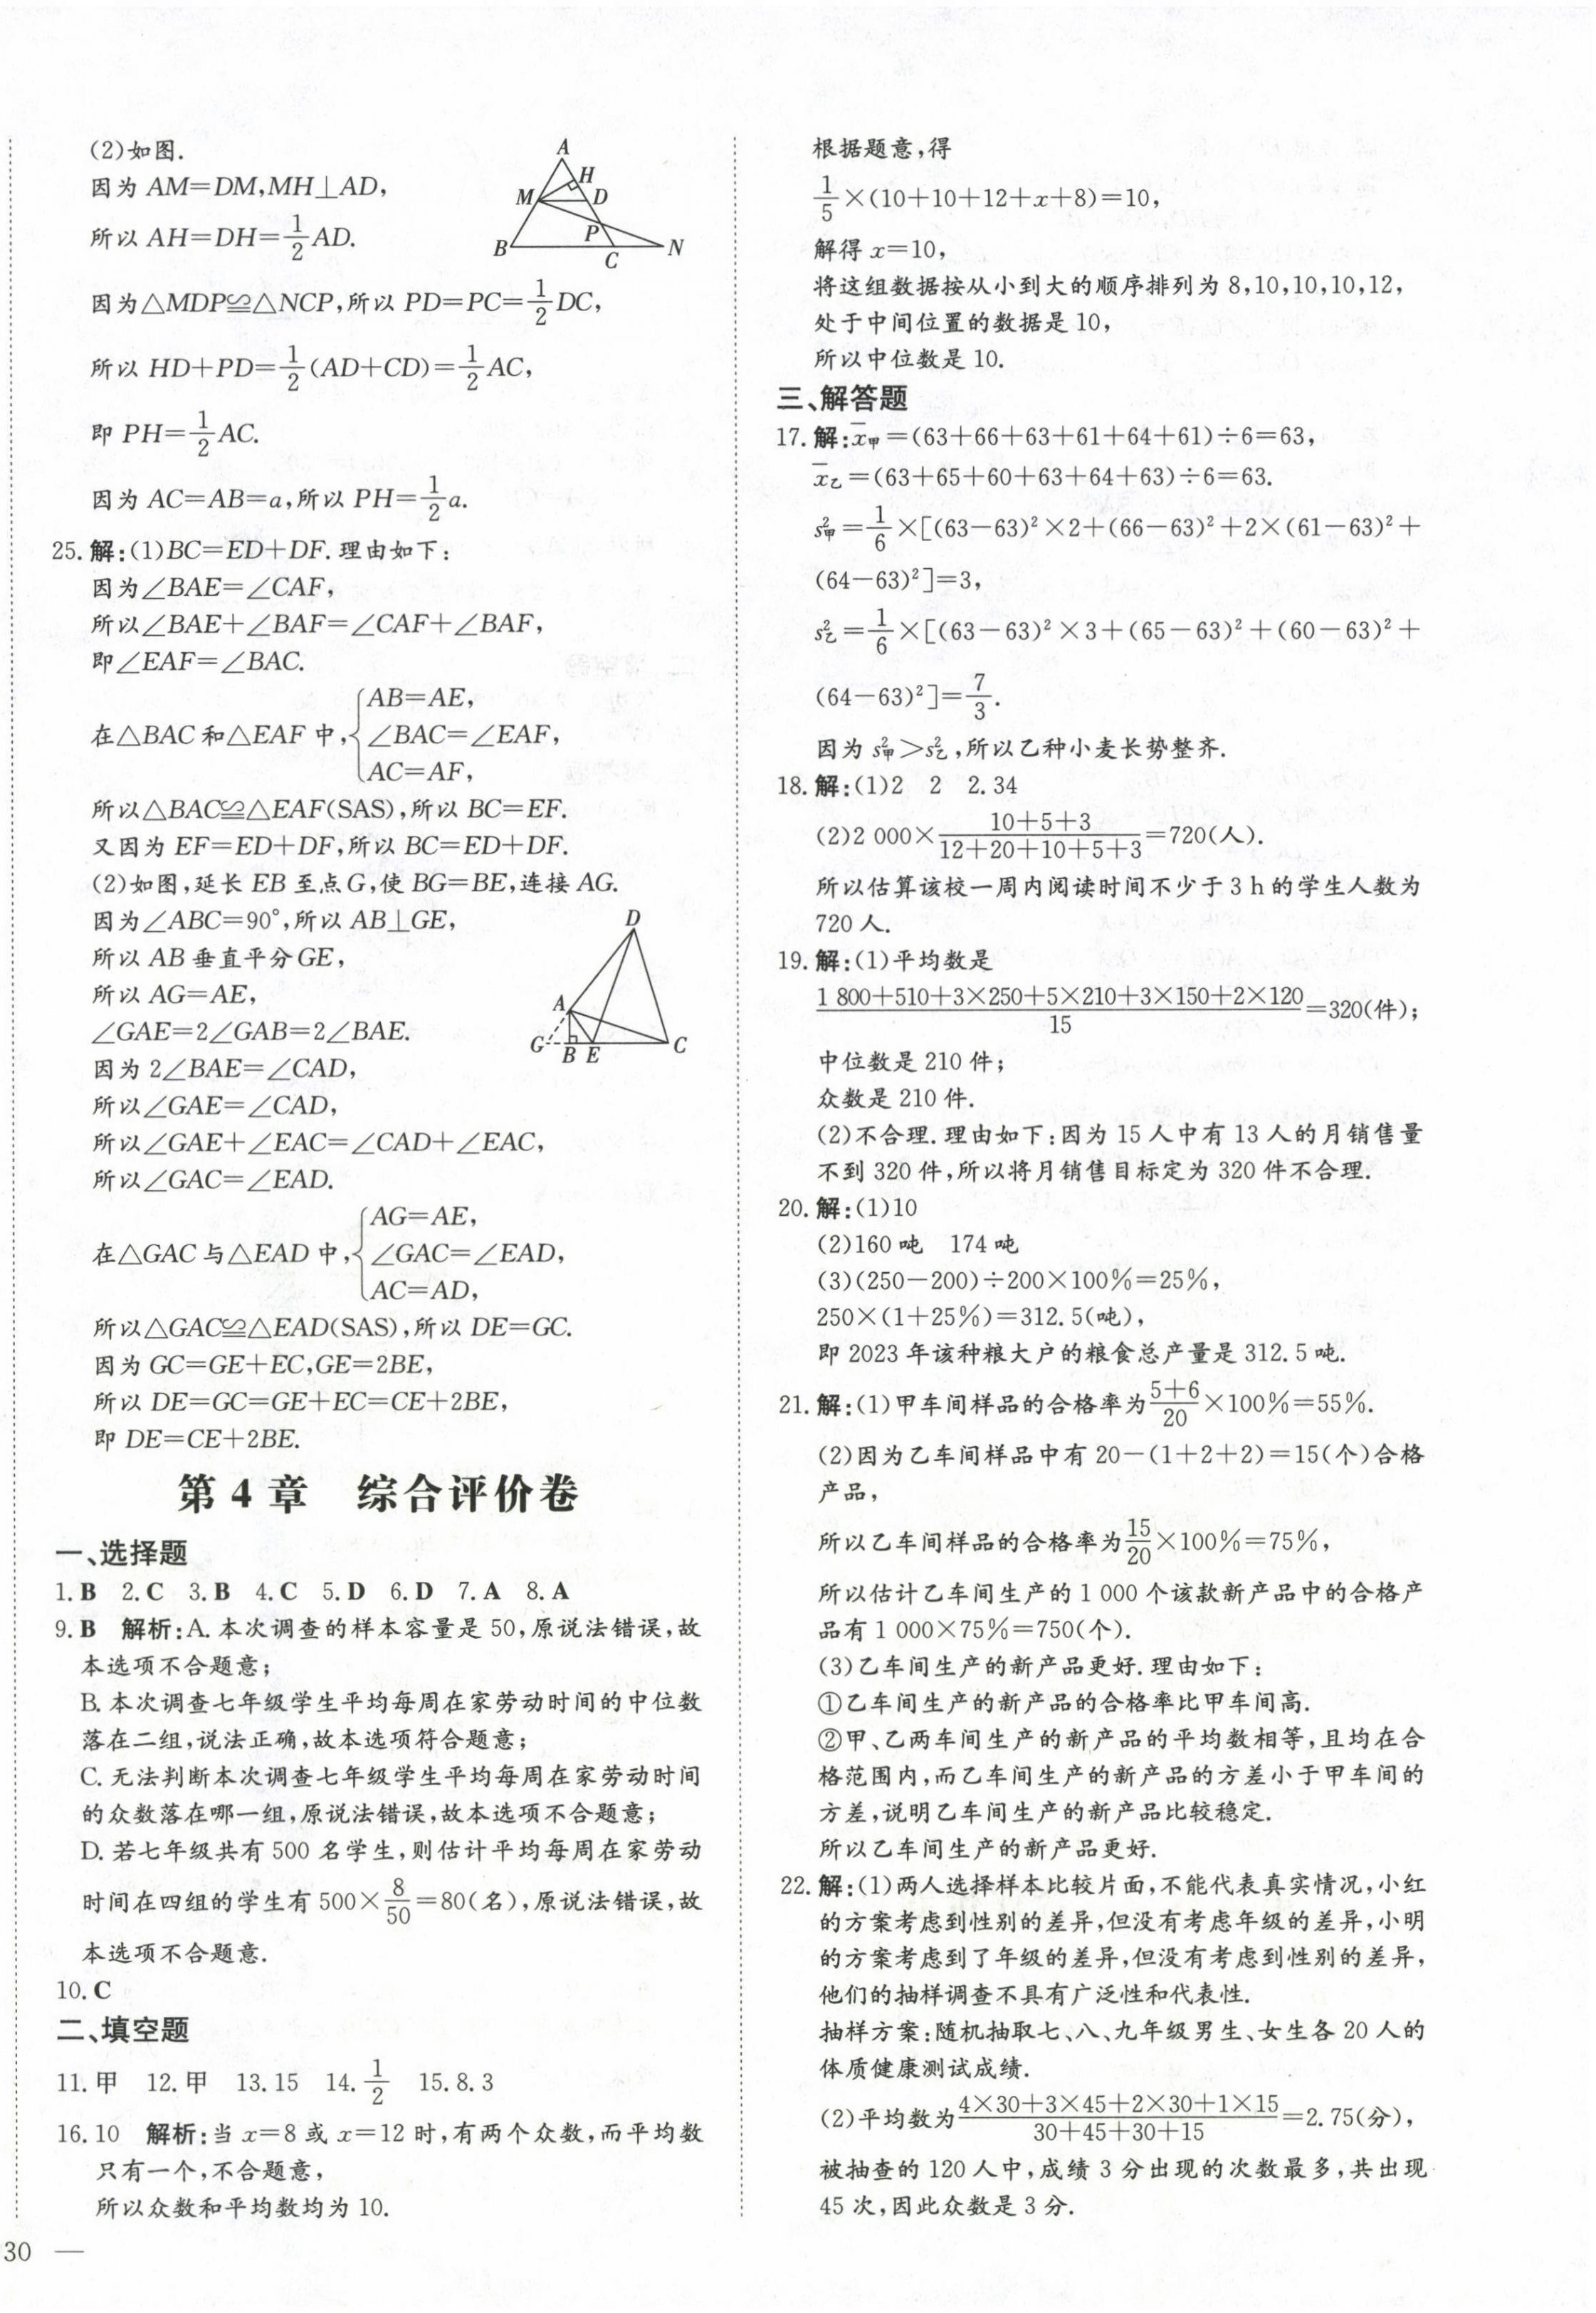 (2)如图.
因为 AM=DM,MH⊥AD,
所以 AH=DH=1/2 AD.
A
H
M
D
P
B
C
N
因为△MDP≌△NCP,所以 PD=PC=1/2 DC,
所以 HD+PD=1/2(AD+CD)=1/2 AC,
即 PH=1/2 AC.
因为 AC=AB=a,所以 PH=1/2 a.
25.解:(1)BC=ED+DF.理由如下:
因为∠BAE=∠CAF,
所以∠BAE+∠BAF=∠CAF+∠BAF,
即∠EAF=∠BAC.
AB=AE,
在△BAC 和△EAF 中,{∠BAC=∠EAF,
AC=AF,
所以△BAC≌△EAF(SAS),所以 BC=EF.
又因为 EF=ED+DF,所以 BC=ED+DF.
(2)如图,延长 EB 至点G,使 BG=BE,连接 AG.
因为∠ABC=90°,所以 AB⊥GE,
所以 AB 垂直平分GE,
所以 AG=AE,
∠GAE=2∠GAB=2∠BAE.
因为 2∠BAE=∠CAD,
D
A
G
B E
C
所以∠GAE=∠CAD,
所以∠GAE+∠EAC=∠CAD+∠EAC,
所以∠GAC=∠EAD.
AG=AE,
在△GAC 与△EAD 中,{∠GAC=∠EAD,
AC=AD,
所以△GAC≌△EAD(SAS),所以 DE=GC.
因为 GC=GE+EC,GE=2BE,
所以 DE=GC=GE+EC=CE+2BE,
即 DE=CE+2BE.
第 4 章 综合评价卷
一、选择题
1.B 2.C 3.B 4.C 5.D 6.D 7.A 8.A
9.B 解析:A.本次调查的样本容量是 50,原说法错误,故
本选项不合题意;
B.本次调查七年级学生平均每周在家劳动时间的中位数
落在二组,说法正确,故本选项符合题意;
C.无法判断本次调查七年级学生平均每周在家劳动时间
的众数落在哪一组,原说法错误,故本选项不合题意;
D.若七年级共有 500 名学生,则估计平均每周在家劳动
时间在四组的学生有 500×8/50=80(名),原说法错误,故
本选项不合题意.
10.C
二、填空题
11.甲 12.甲 13.15 14.1/2 15.8.3
16.10 解析:当 x=8 或 x=12 时,有两个众数,而平均数
只有一个,不合题意,
所以众数和平均数均为 10.
30 —
根据题意,得
1/5×(10+10+12+x+8)=10,
解得 x=10,
将这组数据按从小到大的顺序排列为 8,10,10,10,12,
处于中间位置的数据是 10,
所以中位数是 10.
三、解答题
17.解:x̄甲=(63+66+63+61+64+61)÷6=63,
x̄乙=(63+65+60+63+64+63)÷6=63.
s²甲=1/6×[(63-63)²×2+(66-63)²+2×(61-63)²+
(64-63)²]=3,
s²乙=1/6×[(63-63)²×3+(65-63)²+(60-63)²+
(64-63)²]=7/3.
因为 s²甲>s²乙,所以乙种小麦长势整齐.
18.解:(1)2 2 2.34
(2)2 000×(10+5+3)/(12+20+10+5+3)=720(人).
所以估算该校一周内阅读时间不少于 3 h 的学生人数为
720 人.
19.解:(1)平均数是
(1 800+510+3×250+5×210+3×150+2×120)/15=320(件);
中位数是 210 件;
众数是 210 件.
(2)不合理.理由如下:因为 15 人中有 13 人的月销售量
不到 320 件,所以将月销售目标定为 320 件不合理.
20.解:(1)10
(2)160 吨 174 吨
(3)(250-200)÷200×100%=25%,
250×(1+25%)=312.5(吨),
即 2023 年该种粮大户的粮食总产量是 312.5 吨.
21.解:(1)甲车间样品的合格率为(5+6)/20×100%=55%.
(2)因为乙车间样品中有 20-(1+2+2)=15(个)合格
产品,
所以乙车间样品的合格率为15/20×100%=75%,
所以估计乙车间生产的 1 000 个该款新产品中的合格产
品有 1 000×75%=750(个).
(3)乙车间生产的新产品更好.理由如下:
①乙车间生产的新产品的合格率比甲车间高.
②甲、乙两车间生产的新产品的平均数相等,且均在合
格范围内,而乙车间生产的新产品的方差小于甲车间的
方差,说明乙车间生产的新产品比较稳定.
所以乙车间生产的新产品更好.
22.解:(1)两人选择样本比较片面,不能代表真实情况,小红
的方案考虑到性别的差异,但没有考虑年级的差异,小明
的方案考虑到了年级的差异,但没有考虑到性别的差异,
他们的抽样调查不具有广泛性和代表性.
抽样方案:随机抽取七、八、九年级男生、女生各 20 人的
体质健康测试成绩.
(2)平均数为(4×30+3×45+2×30+1×15)/(30+45+30+15)=2.75(分),
被抽查的 120 人中,成绩 3 分出现的次数最多,共出现
45 次,因此众数是 3 分.